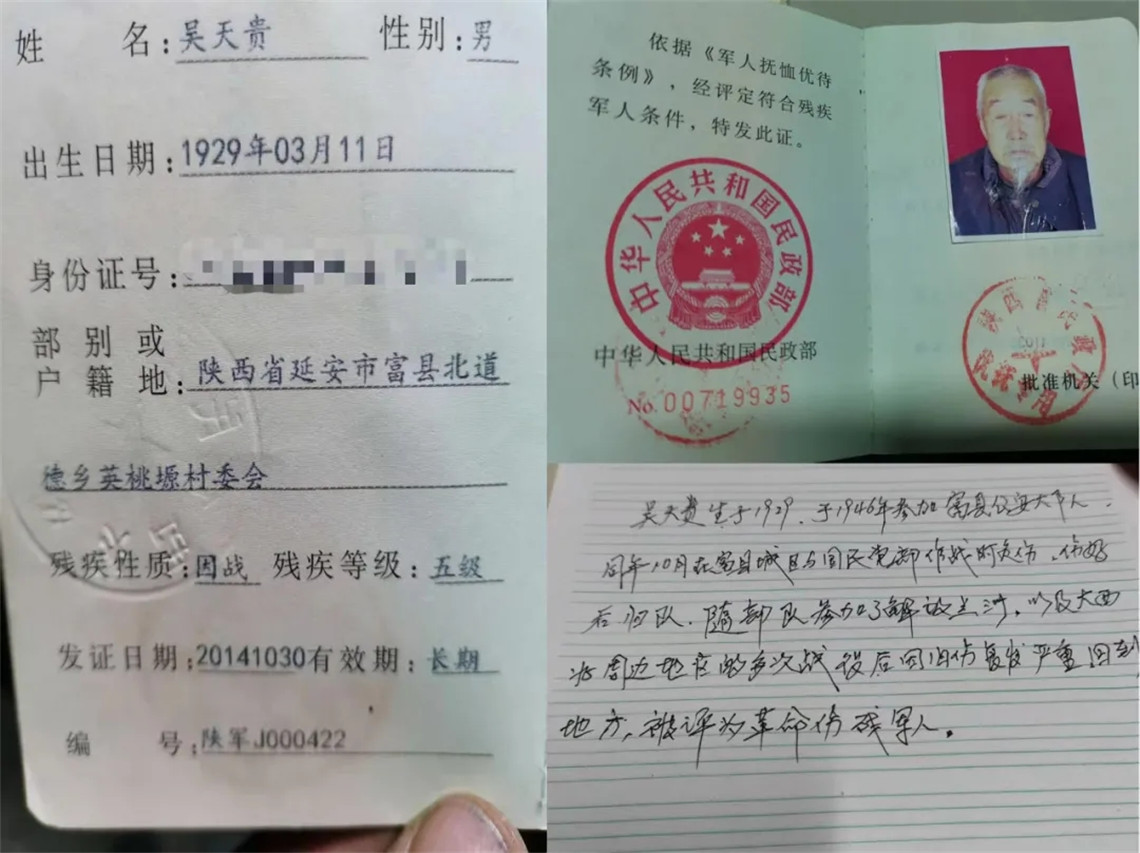 姓 名:吴天贵 性别:男
出生日期:1929年03月11日
身份证号:
部别或
户籍地:陕西省延安市富县北道
德乡英桃塬村委会
残疾性质:因战 残疾等级:五级
发证日期:20141030有效期:长期
编 号:陕军J000422
依据《军人抚恤优待
条例》,经评定符合残疾
军人条件,特发此证。
中华人民共和国民政部
中华人民共和国民政部
No.00719935
批准机关(印
吴天贵生于1929、于1946年参加富县公安大队人.
同年10月在富县城区与国民党部作战时负伤、伤好
后归队、随部队参加了解放兰州,以及大西
北周边地区的多次战役后因旧伤复发严重回到
地方,被评为革命伤残军人。